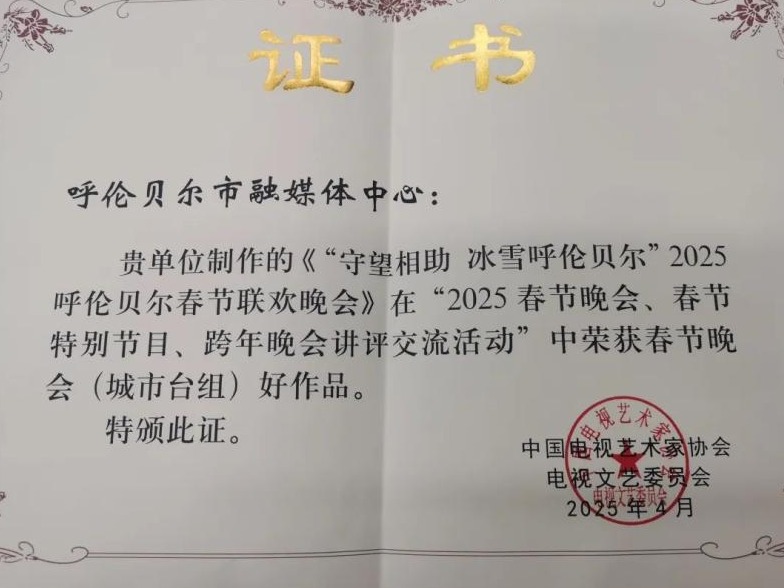 证书
呼伦贝尔市融媒体中心：
贵单位制作的《“守望相助 冰雪呼伦贝尔”2025
呼伦贝尔春节联欢晚会》在“2025春节晚会、春节
特别节目、跨年晚会讲评交流活动”中荣获春节晚
会（城市台组）好作品。
特颁此证。
中国电视艺术家协会
电视文艺委员会
2025年4月
中国电视艺术家协会
电视文艺委员会